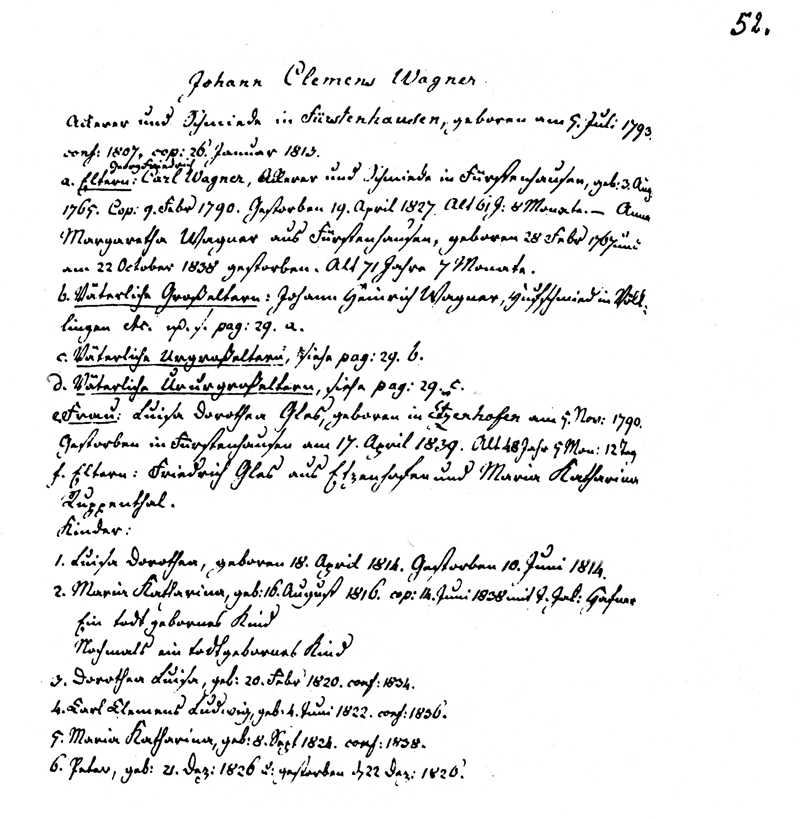 52.
Johann Clemens Wagner
Ackerer und Schmiede in Fürstenhausen, geboren am 5. Juli 1793.
conf: 1807, cop: 26. Januar 1813.
Georg Friedrich
a. Eltern: Carl Wagner, Ackerer und Schmiede in Fürstenhausen, geb: 3. Aug
1765. Cop: 9. Febr 1790. Gestorben 19. April 1827. Alt 61 J: 8 Monate. — Anna
Margaretha Wagner aus Fürstenhausen, geboren 28 Febr
am 22 October 1838 gestorben. Alt 71 Jahre 7 Monate.
b. Väterliche Großeltern: Johann Heinrich Wagner, Hufschmied in Völk-
lingen etc. pag: 29. a.
c. Väterliche Urgroßeltern, siehe pag: 29. b.
d. Väterliche Ururgroßeltern, siehe pag: 29. c.
e. Frau: Luisa Dorothea Gles, geboren in Etzenhofen am 5. Nov: 1790.
Gestorben in Fürstenhausen am 17. April 1839. Alt 48 Jahr 5 Mon: 12 Tag
f. Eltern: Friedrich Gles aus Etzenhofen und Maria Katharina
Ruppenthal.
Kinder:
1. Luisa Dorothea, geboren 18. April 1814. Gestorben 10. Juni 1814.
2. Maria Katharina, geb: 16. August 1816. cop: 14. Juni 1838 mit J. Jak: Hafner
Ein todt gebornes Kind
Nochmals ein todtgebornes Kind
3. Dorothea Luisa, geb: 20. Febr 1820. conf: 1834.
4. Karl Clemens Ludwig, geb: 4. Juni 1822. conf: 1836.
5. Maria Katharina, geb: 8. Sept 1824. conf: 1838.
6. Peter, geb: 21. Dez: 1826 u: gestorben d 22 Dez: 1826.